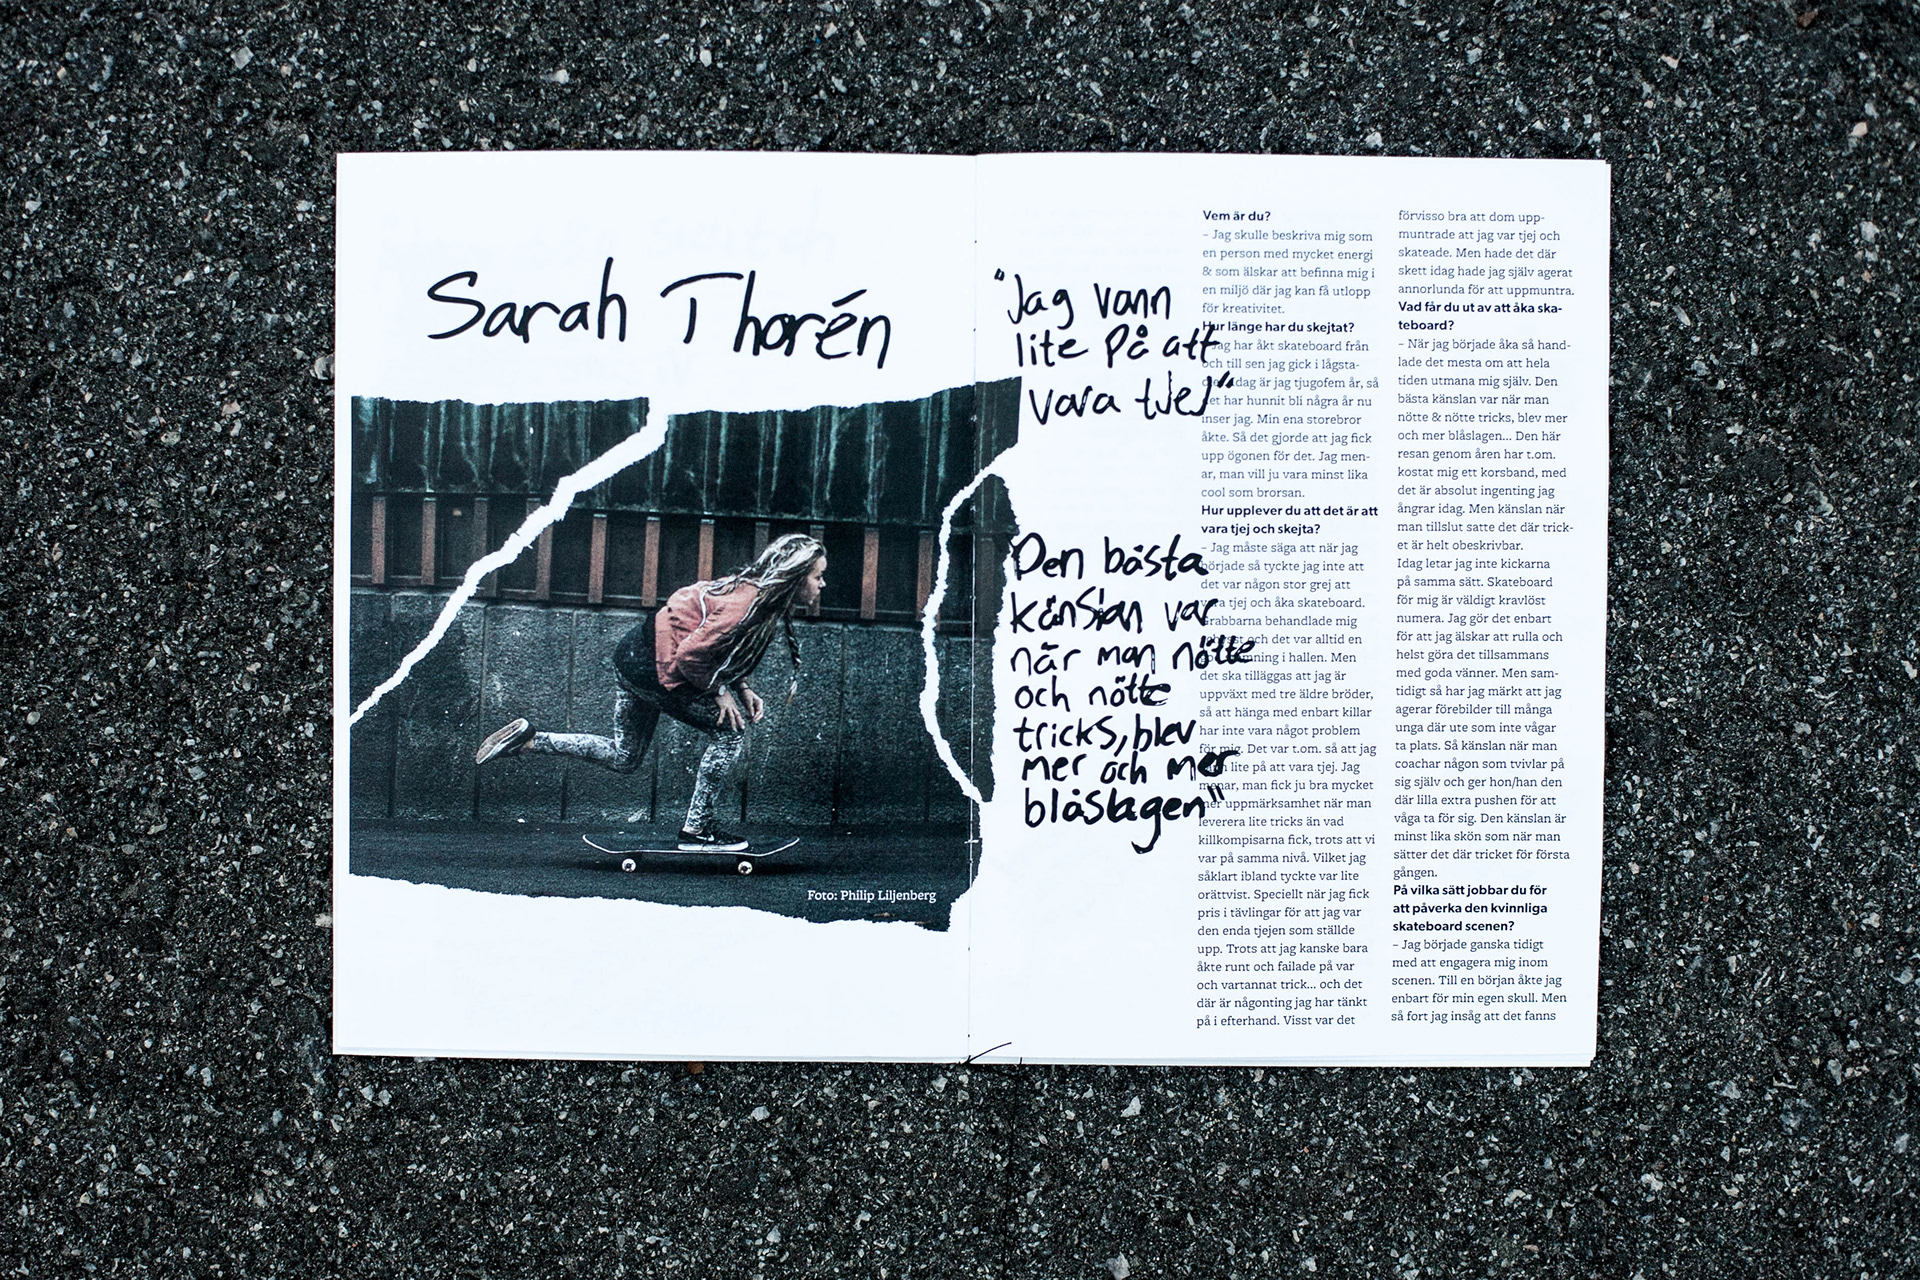 Sarah Thorén
Foto: Philip Liljenberg
"Jag vann
lite På att
vara tjej"
Den bästa
känslan var
när man nötte
och nötte
tricks, blev
mer och mer
blåslagen"
Vem är du?
– Jag skulle beskriva mig som
en person med mycket energi
& som älskar att befinna mig i
en miljö där jag kan få utlopp
för kreativitet.
Hur länge har du skejtat?
Jag har åkt skateboard från
och till sen jag gick i lågsta-
idag är jag tjugofem år, så
det har hunnit bli några år nu
inser jag. Min ena storebror
åkte. Så det gjorde att jag fick
upp ögonen för det. Jag men-
ar, man vill ju vara minst lika
cool som brorsan.
Hur upplever du att det är att
vara tjej och skejta?
– Jag måste säga att när jag
började så tyckte jag inte att
det var någon stor grej att
vara tjej och åka skateboard.
Grabbarna behandlade mig
och det var alltid en
i hallen. Men
det ska tilläggas att jag är
uppväxt med tre äldre bröder,
så att hänga med enbart killar
har inte vara något problem
för mig. Det var t.om. så att jag
vann lite på att vara tjej. Jag
menar, man fick ju bra mycket
mer uppmärksamhet när man
leverera lite tricks än vad
killkompisarna fick, trots att vi
var på samma nivå. Vilket jag
såklart ibland tyckte var lite
orättvist. Speciellt när jag fick
pris i tävlingar för att jag var
den enda tjejen som ställde
upp. Trots att jag kanske bara
åkte runt och failade på var
och vartannat trick... och det
där är någonting jag har tänkt
på i efterhand. Visst var det
förvisso bra att dom upp-
muntrade att jag var tjej och
skateade. Men hade det där
skett idag hade jag själv agerat
annorlunda för att uppmuntra.
Vad får du ut av att åka ska-
teboard?
– När jag började åka så hand-
lade det mesta om att hela
tiden utmana mig själv. Den
bästa känslan var när man
nötte & nötte tricks, blev mer
och mer blåslagen... Den här
resan genom åren har t.om.
kostat mig ett korsband, med
det är absolut ingenting jag
ångrar idag. Men känslan när
man tillslut satte det där trick-
et är helt obeskrivbar.
Idag letar jag inte kickarna
på samma sätt. Skateboard
för mig är väldigt kravlöst
numera. Jag gör det enbart
för att jag älskar att rulla och
helst göra det tillsammans
med goda vänner. Men sam-
tidigt så har jag märkt att jag
agerar förebilder till många
unga där ute som inte vågar
ta plats. Så känslan när man
coachar någon som tvivlar på
sig själv och ger hon/han den
där lilla extra pushen för att
våga ta för sig. Den känslan är
minst lika skön som när man
sätter det där tricket för första
gången.
På vilka sätt jobbar du för
att påverka den kvinnliga
skateboard scenen?
– Jag började ganska tidigt
med att engagera mig inom
scenen. Till en början åkte jag
enbart för min egen skull. Men
så fort jag insåg att det fanns